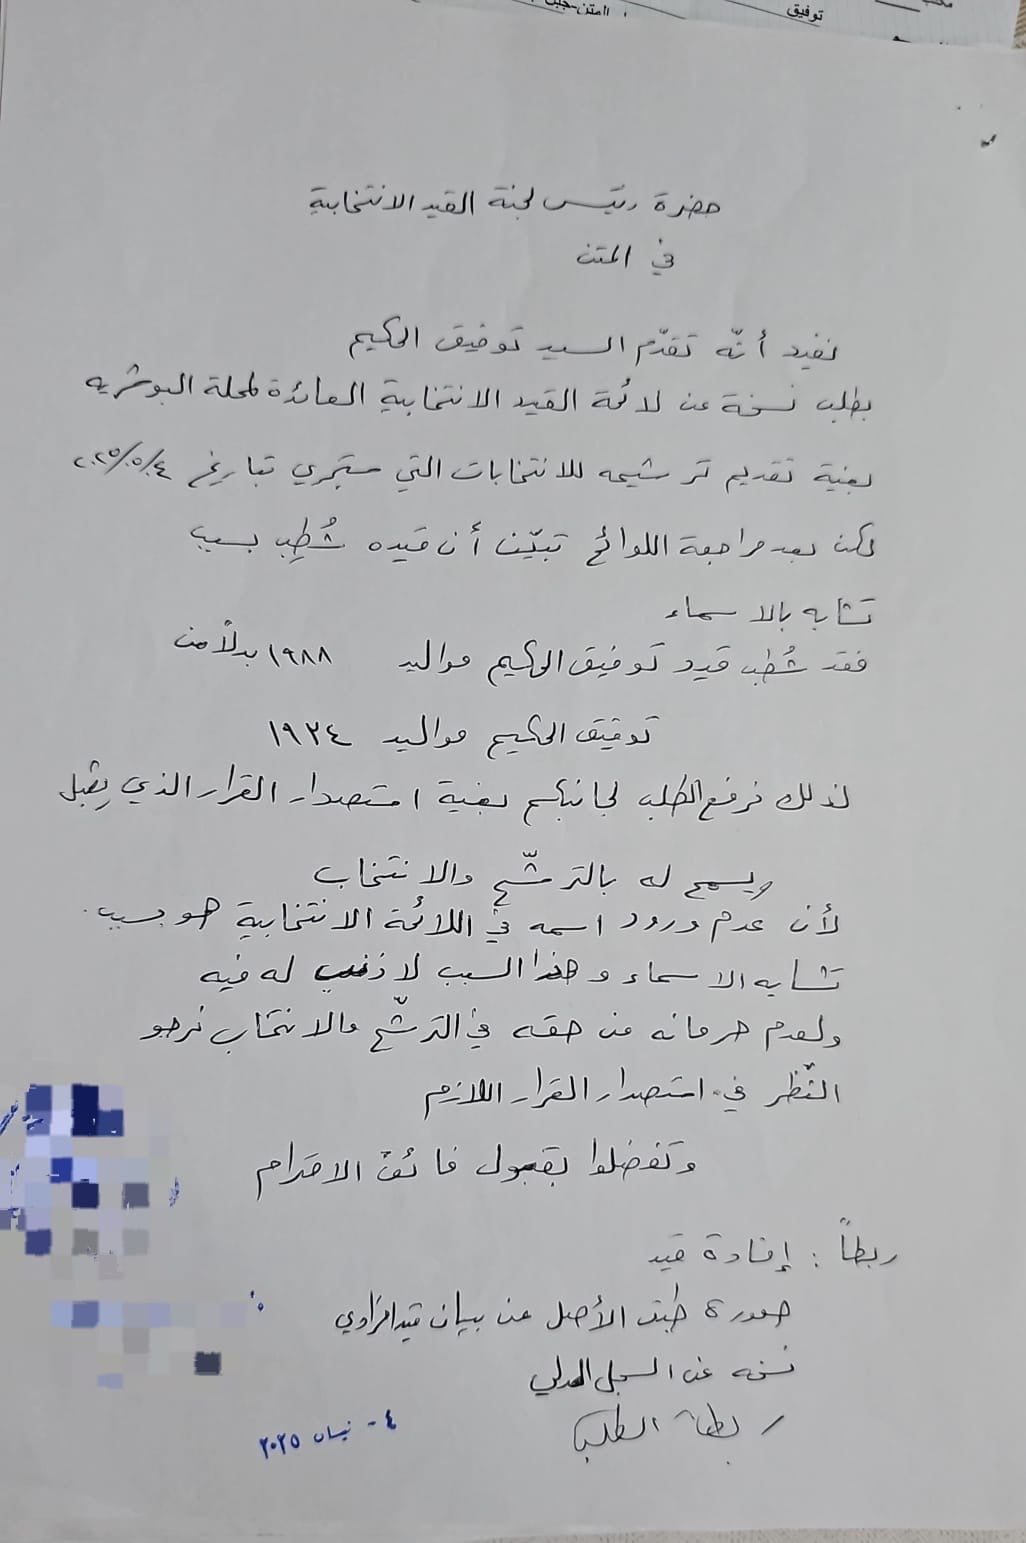 توفيق
المتن-جبل
حضرة رئيس لجنة القيد الانتخابية
في المتن
نفيد أنّه تقدّم السيد توفيق الحكيم
بطلب نسخة عن لائحة القيد الانتخابية العائدة لمحلة البوشريه
بغية تقديم ترشيحه للانتخابات التي ستجري بتاريخ ٢٠٢٥/٠٥/٠٤
لكن بعد مراجعة اللوائح تبيّن أن قيده شُطِب بسبب
تشابه بالاسماء
فقد شُطِب قيد توفيق الحكيم مواليد ١٩٨٨ بدلاً من
توفيق الحكيم مواليد ١٩٣٤
لذلك نرفع الطلب لجانبكم بغية استصدار القرار الذي يقبل
ويسمح له بالترشّح والانتخاب
لأن عدم ورود اسمه في اللائحة الانتخابية هو بسبب
تشابه الاسماء وهذا السبب لا ذنب له فيه
ولعدم حرمانه من حقه في الترشّح والانتخاب نرجو
النّظر في استصدار القرار اللازم
وتفضلوا بقبول فائق الاحترام
ربطاً : إفادة قيد
صورة طبق الأصل عن بيان قيد افرادي
نسخه عن السجل العدلي
ربطا الطلب
٤ - نيسان ٢٠٢٥